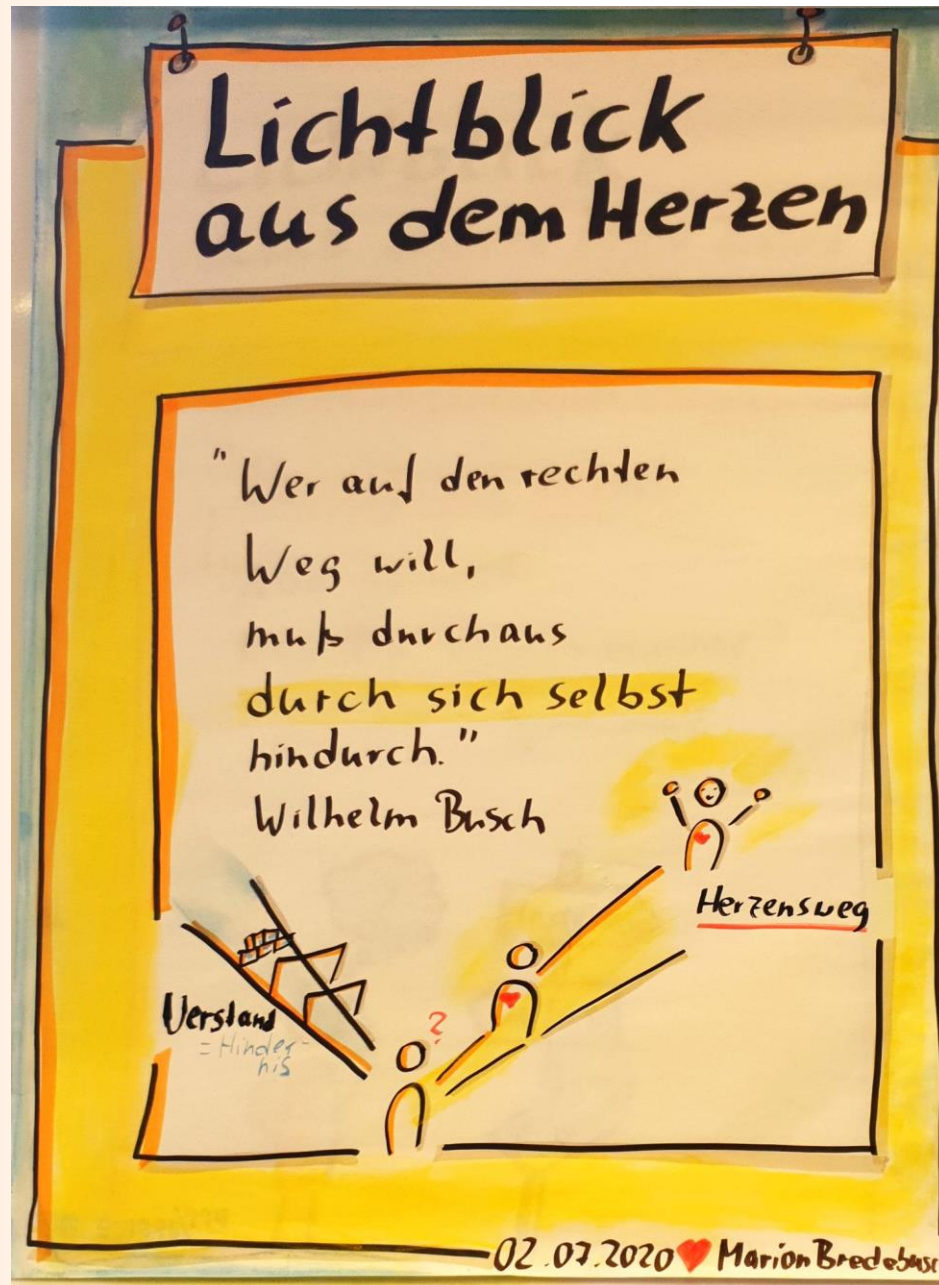 Lichtblick
aus dem Herzen
"Wer auf den rechten
Weg will,
muß durchaus
durch sich selbst
hindurch."
Wilhelm Busch
Herzensweg
Verstand
= Hinder-
nis
?
02.07.2020 Marion Bredebusc